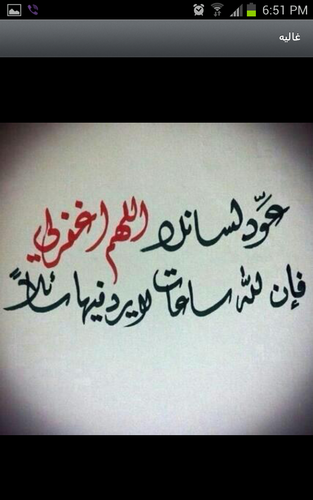 6:51 PM
غاليه
عوِّد لسانك اللهم اغفرلي
فإن لله ساعات لا يرد فيها سائلاً